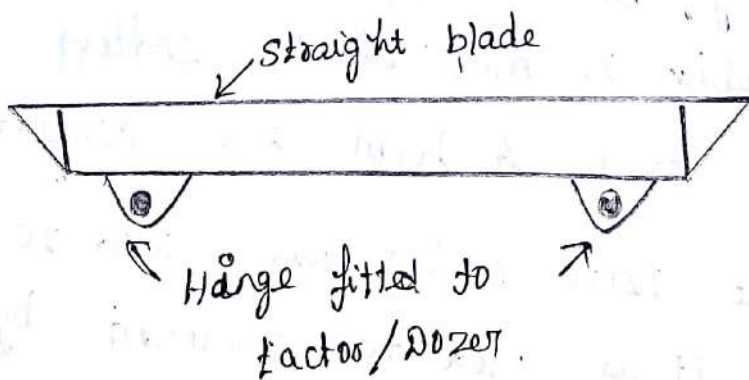 Straight blade
Hinge fitted to
tactoo/Dozer.